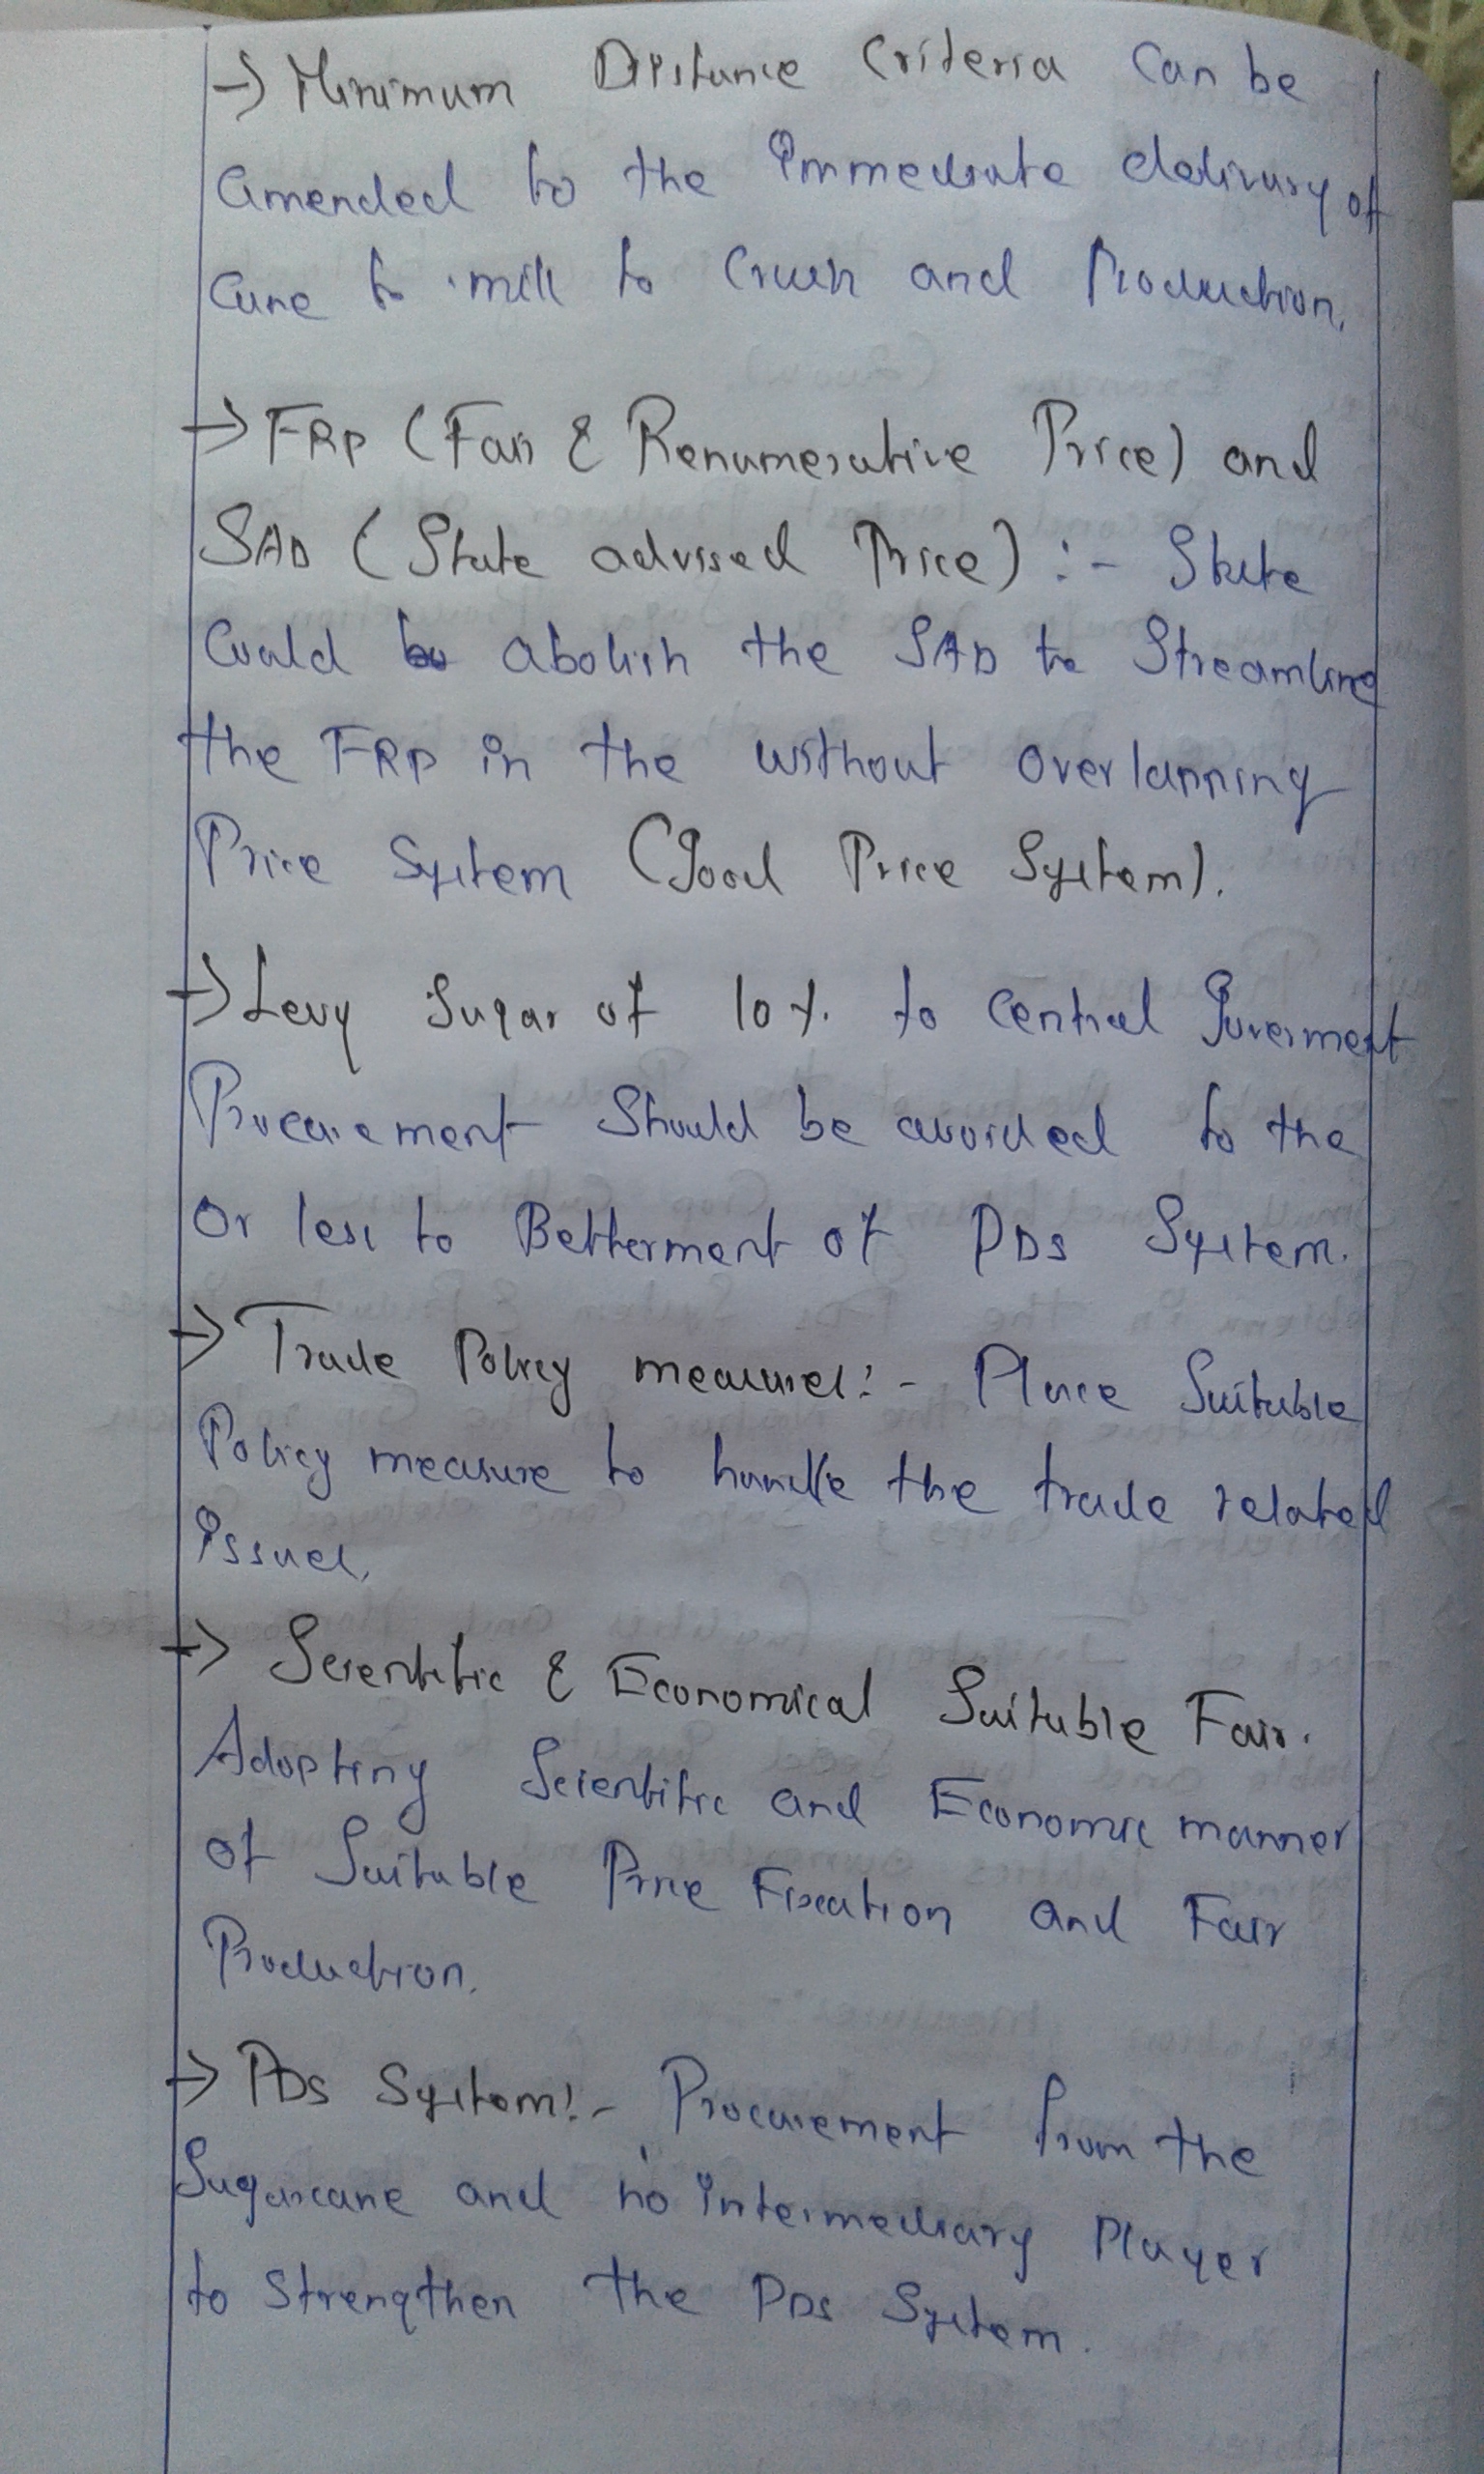 → Minimum Distance Criteria Can be
amended to the immediate delivery of
Cane to mill to Crush and Production.
→ FRP (Fair & Renumerative Price) and
SAP (State advised Price) :- State
Could be abolish the SAP to Streamline
the FRP in the without overlapping
Price System (Good Price System).
→ Levy Sugar of 10%. to Central Goverment
Procurement Should be avoided to the
Or less to Betterment of PDS System.
→ Trade Policy measures :- Place Suitable
Policy measure to handle the trade related
issues.
→ Scientific & Economical Suitable Fair.
Adopting Scientific and Economic manner
of Suitable Price Fixation and Fair
Production.
→ PDS System :- Procurement from the
Sugarcane and no intermediary Player
to Strengthen the PDS System.